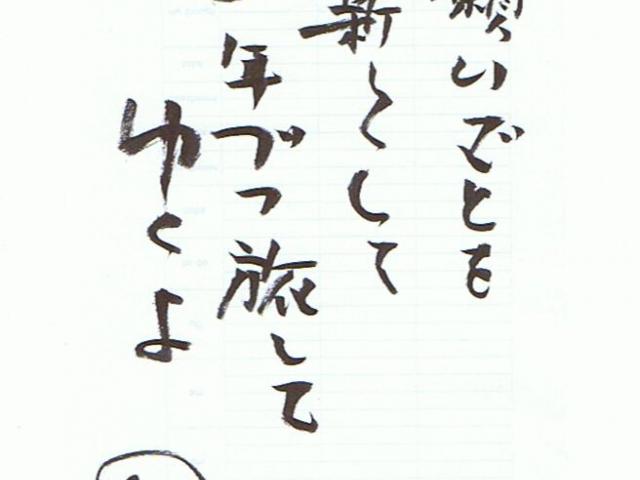 願いごとを
新しくして
年づつ旅して
ゆくよ